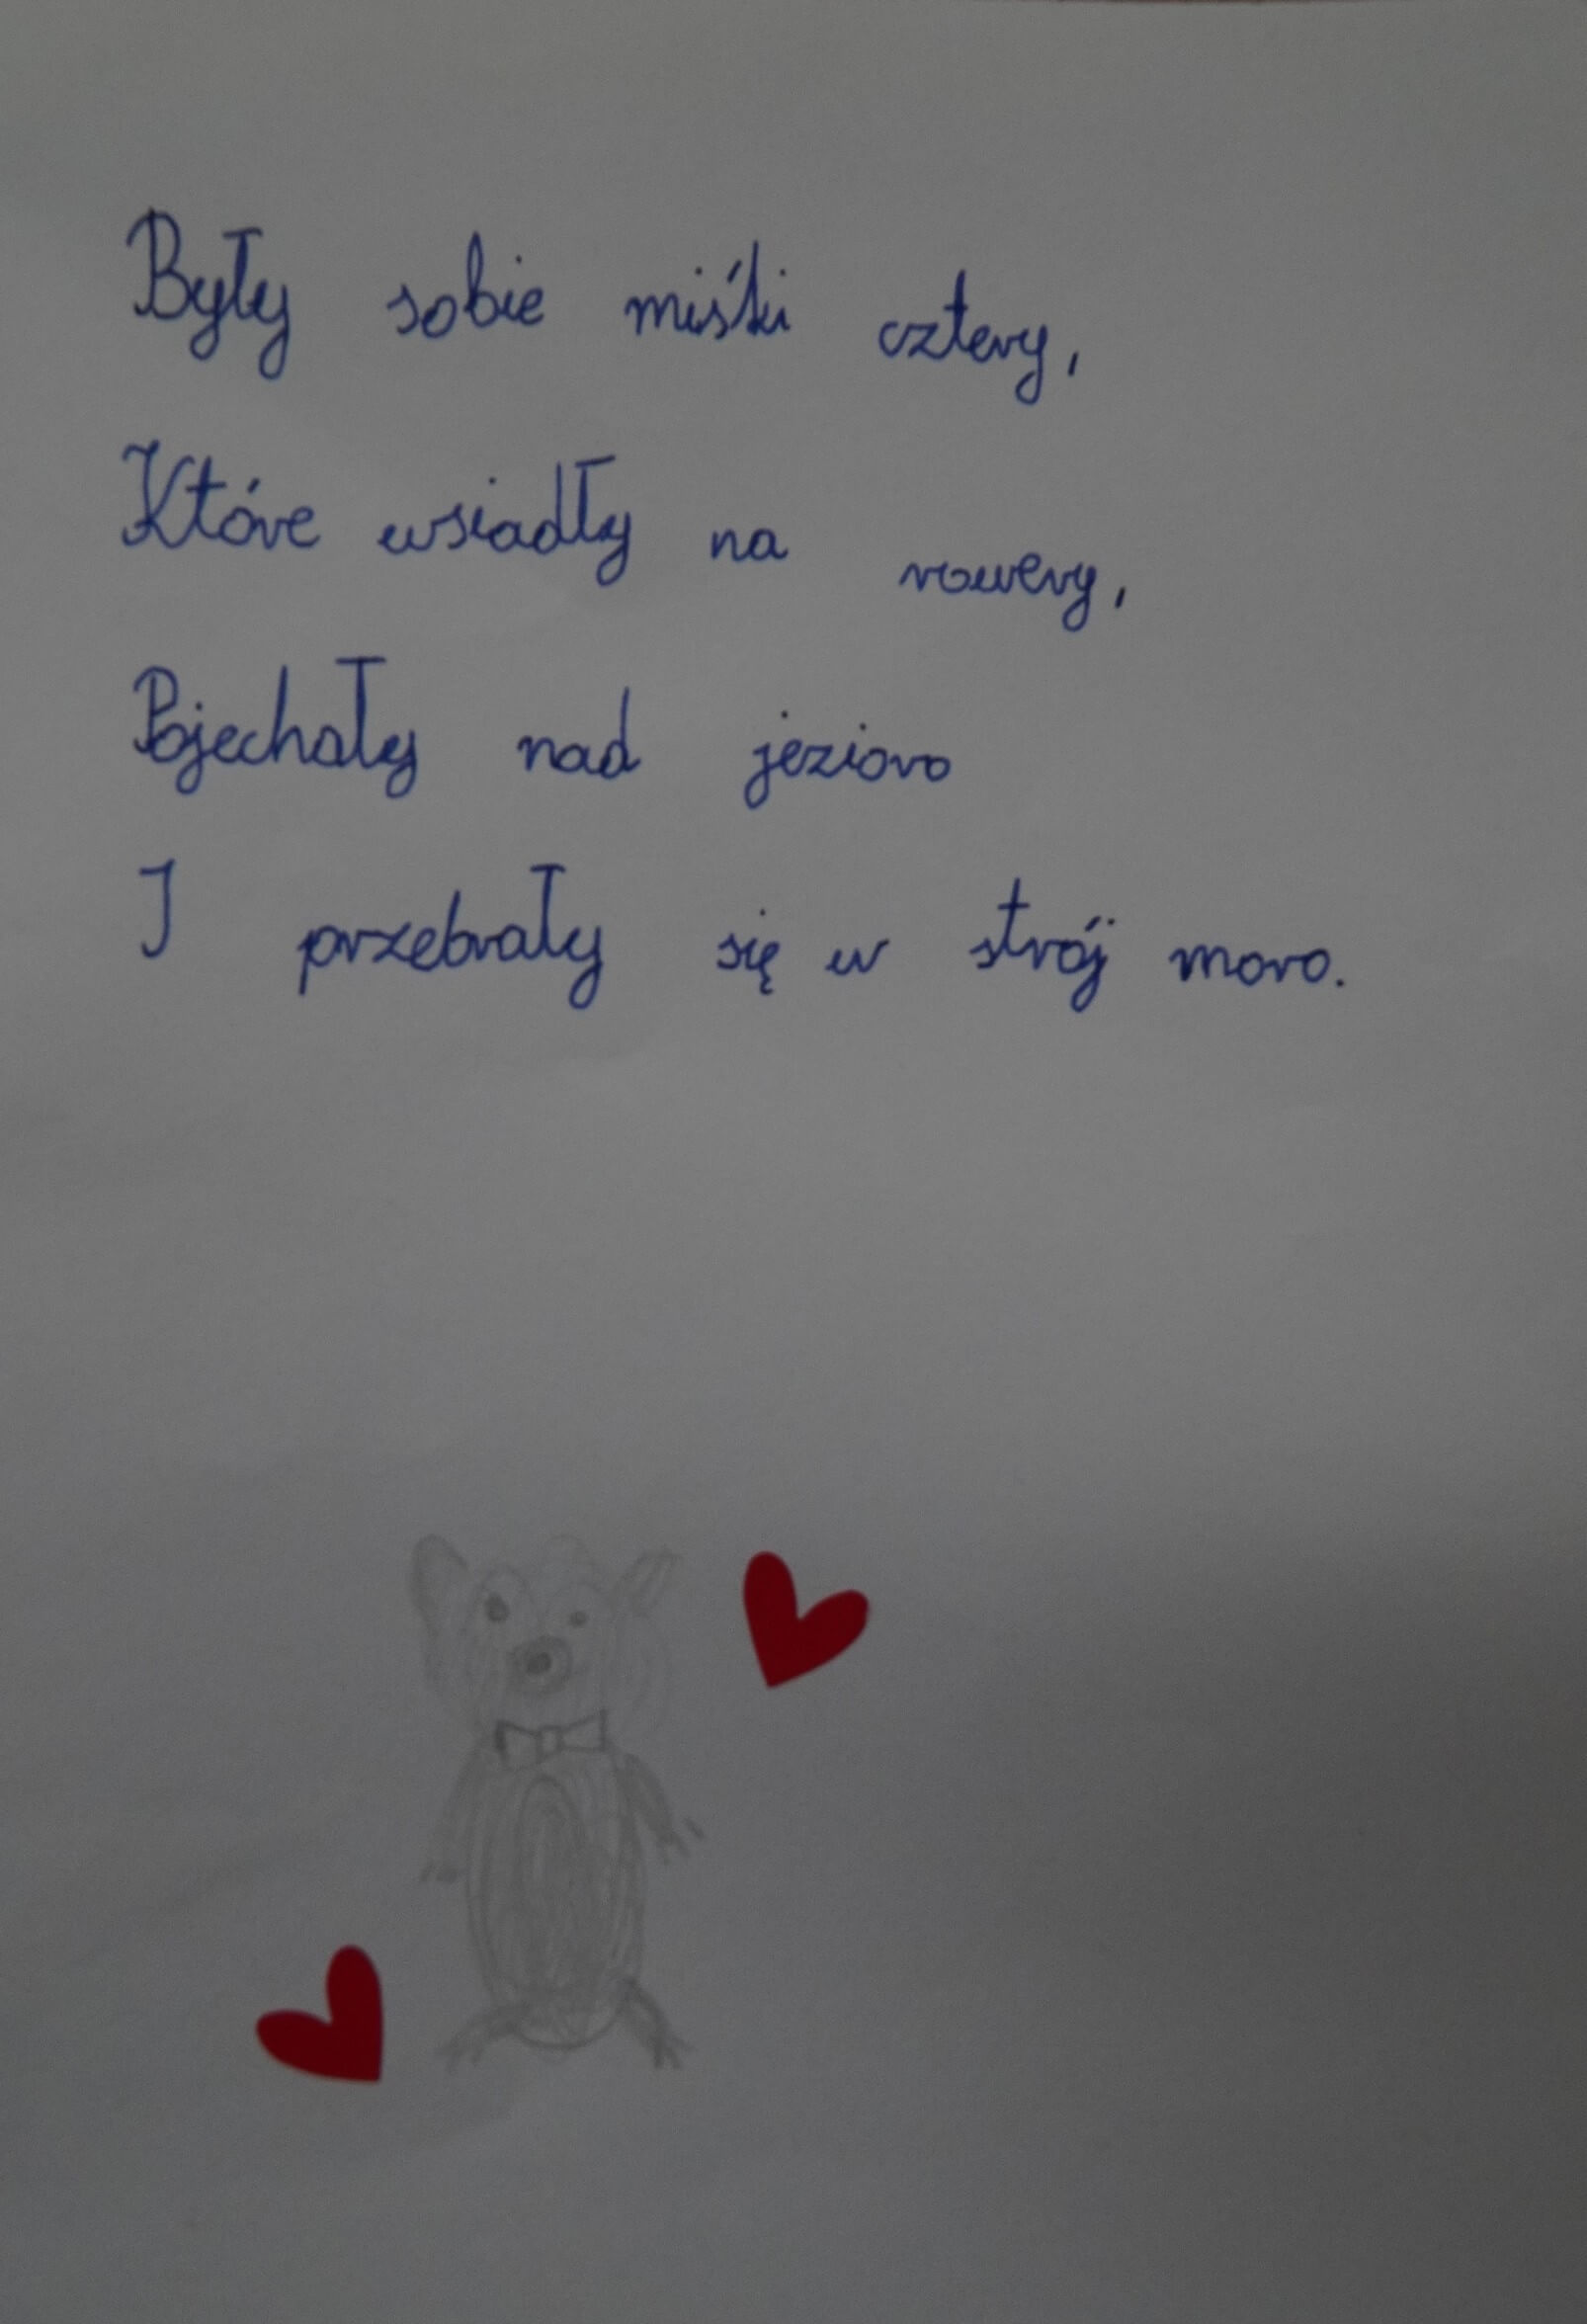 Były sobie miśki cztery,
Które wsiadły na rowery,
Pojechały nad jezioro
I przebrały się w strój moro.